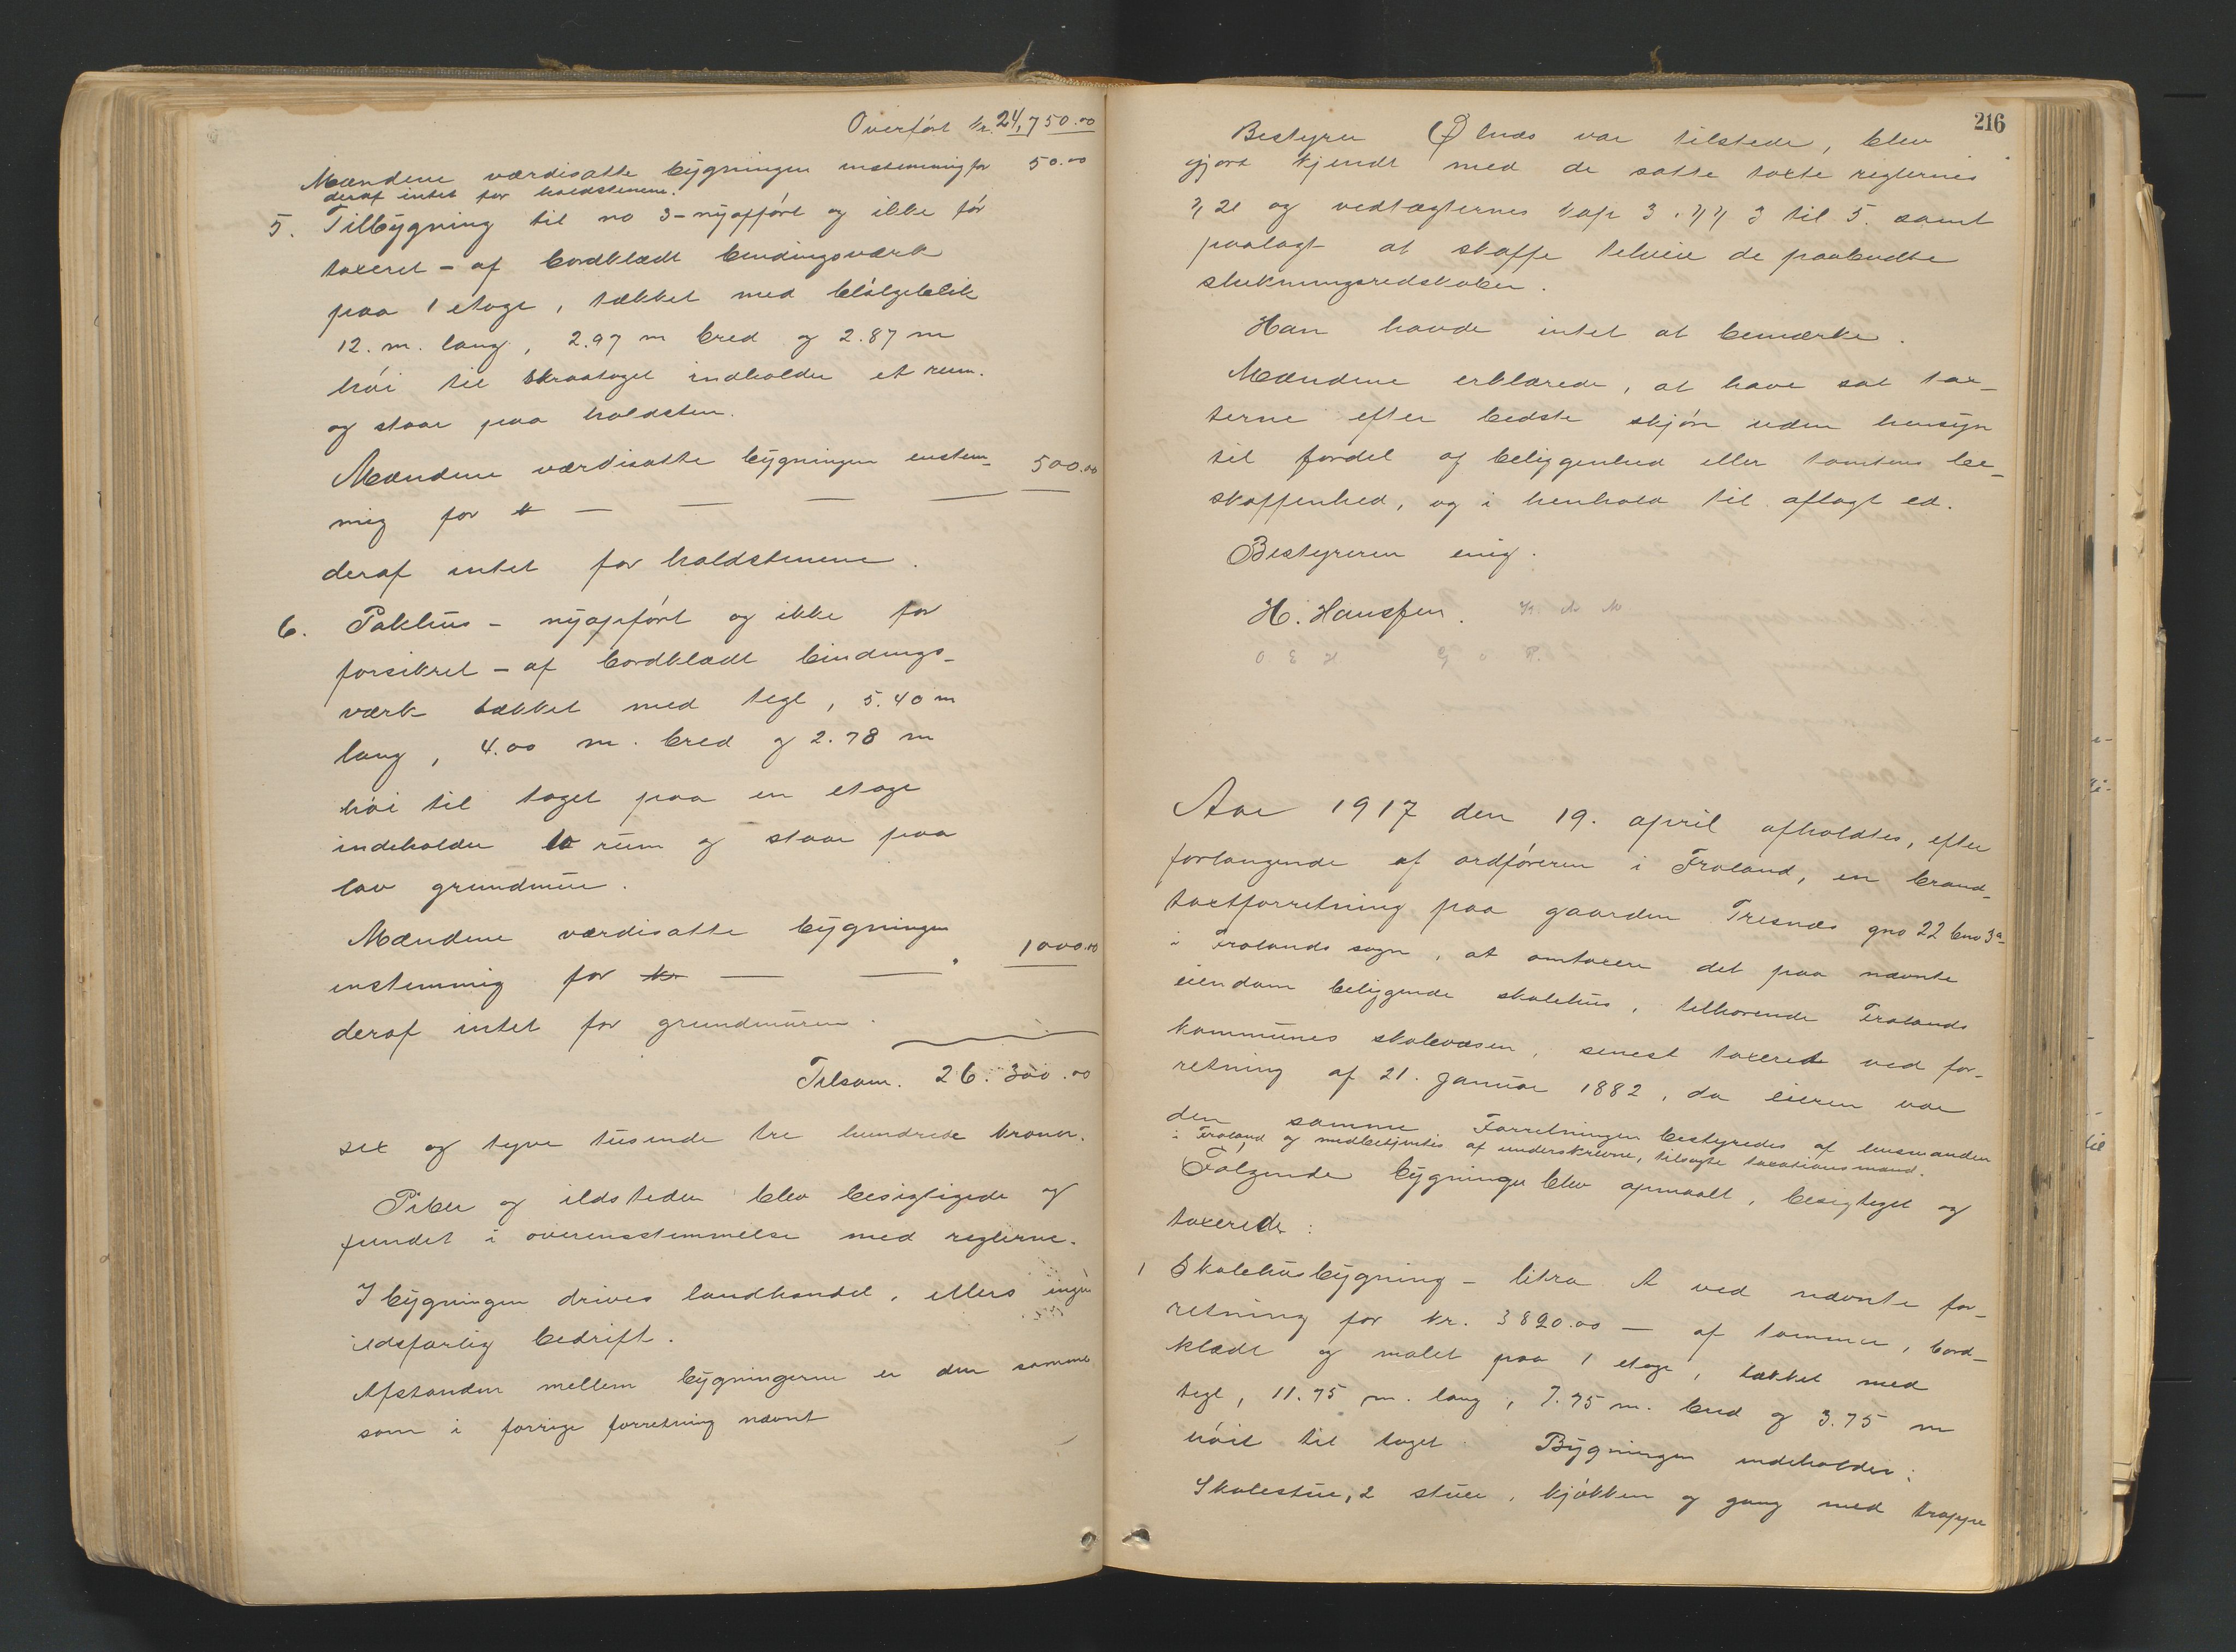 Overført kr. 24,750.00
Mændene værdisatte bygningen enstemmig for 50.00
deraf intet for holdstenene.
5. Tilbygning til no 3 - nyopført og ikke før
taxeret - af bordklædt bindingsværk
paa 1 etage, tækket med bølgeblik
12. m. lang, 2.97 m bred og 2.87 m
høi til skraataget indholder et rum.
og staar paa holdsten.
Mændene værdisatte bygningen enstem- 500.00
mig for
deraf intet for holdstenene.
6. Pakhus - nyopført og ikke før
forsikret - af bordklædt bindings-
værk tækket med tegl, 5.40 m
lang, 4.00 m. bred og 2.78 m
høi til taget paa en etage
indeholder to rum og staar paa
lav grundmur.
Mændene værdisatte bygningen
enstemmig for kr — — " 1000.00
deraf intet for grundmuren.
Tilsam. 26.300.00
sex og tyve tusende tre hundrede kroner.
Piber og ildsteder blev besigtigede og
fundet i overensstemmelse med reglerne.
I bygningen drives landhandel, ellers ingen
ildsfarlig bedrift.
Afstanden mellem bygningerne er den samme
som i forrige forretning nævnt
216
Bestyrer var tilstede, blev
gjort kjendt med de satte taxter reglernes
§ 21 og vedtægternes kap 3. §§ 3 til 5. samt
paalagt at skaffe tilveie de paabudte
slukningsredskaber.
Han havde intet at bemærke.
Mændene erklærede, at have sat tax-
terne efter bedste skjøn uden hensyn
til fordel af beliggenhed eller tomtens be-
skaffenhed, og i henhold til aflagt ed.
Bestyreren enig.
H. Hanssen.
Aar 1917 den 19. april afholdtes, efter
forlangende af ordføreren i Froland, en brand-
taxtforretning paa gaarden Tresnæs gno 22 bno 3a
i Frolands sogn, at omtaxere det paa nævnte
eiendom beliggende skolehus, tilhørende Frolands
kommunes skolevæsen, senest taxeret ved for-
retning af 21. januar 1882, da eieren var
den samme. Forretningen bestyredes af lensmanden
i Froland og medbetjentes af underskrevne, tilsagte taxationsmænd.
Følgende bygninger blev opmaalt, besigtiget og
taxerede:
1 Skolehusbygning - litra A ved nævnte for-
retning for kr. 3820.00 - af tømmer, bord-
klædt og malet paa 1 etage, tækket med
tegl, 11.75 m. lang, 7.75 m. bred og 3.75 m
høit til taget. Bygningen indeholder:
Skolestue, 2 stuer, kjøkken og gang med trappe